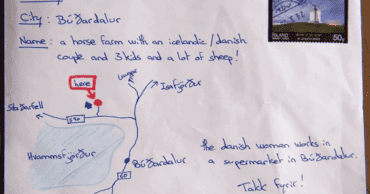 City : Búðardalur
Name : a horse farm with an icelandic/danish
couple and 3 kids and a lot of sheep!
ÍSLAND
50g
here
Ísafjörður
Staðarfell
590
Hvammsfjörður
Búðardalur
60
the danish woman works in
a supermarket in Búðardalur.
Takk fyrir!